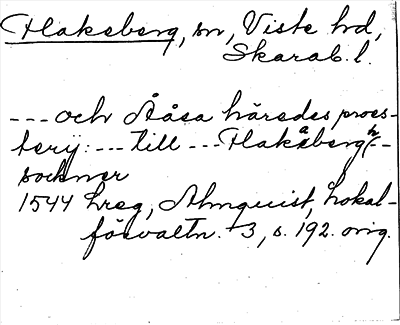 Flakeberg, sn, Viste hd,
Skarab. l.
--- och Ååsa häredes proes-
terij: --- till --- Flakåberg --
sockner
1544 Lreg, Almquist, Lokal-
förvaltn. 3, s. 192. orig.